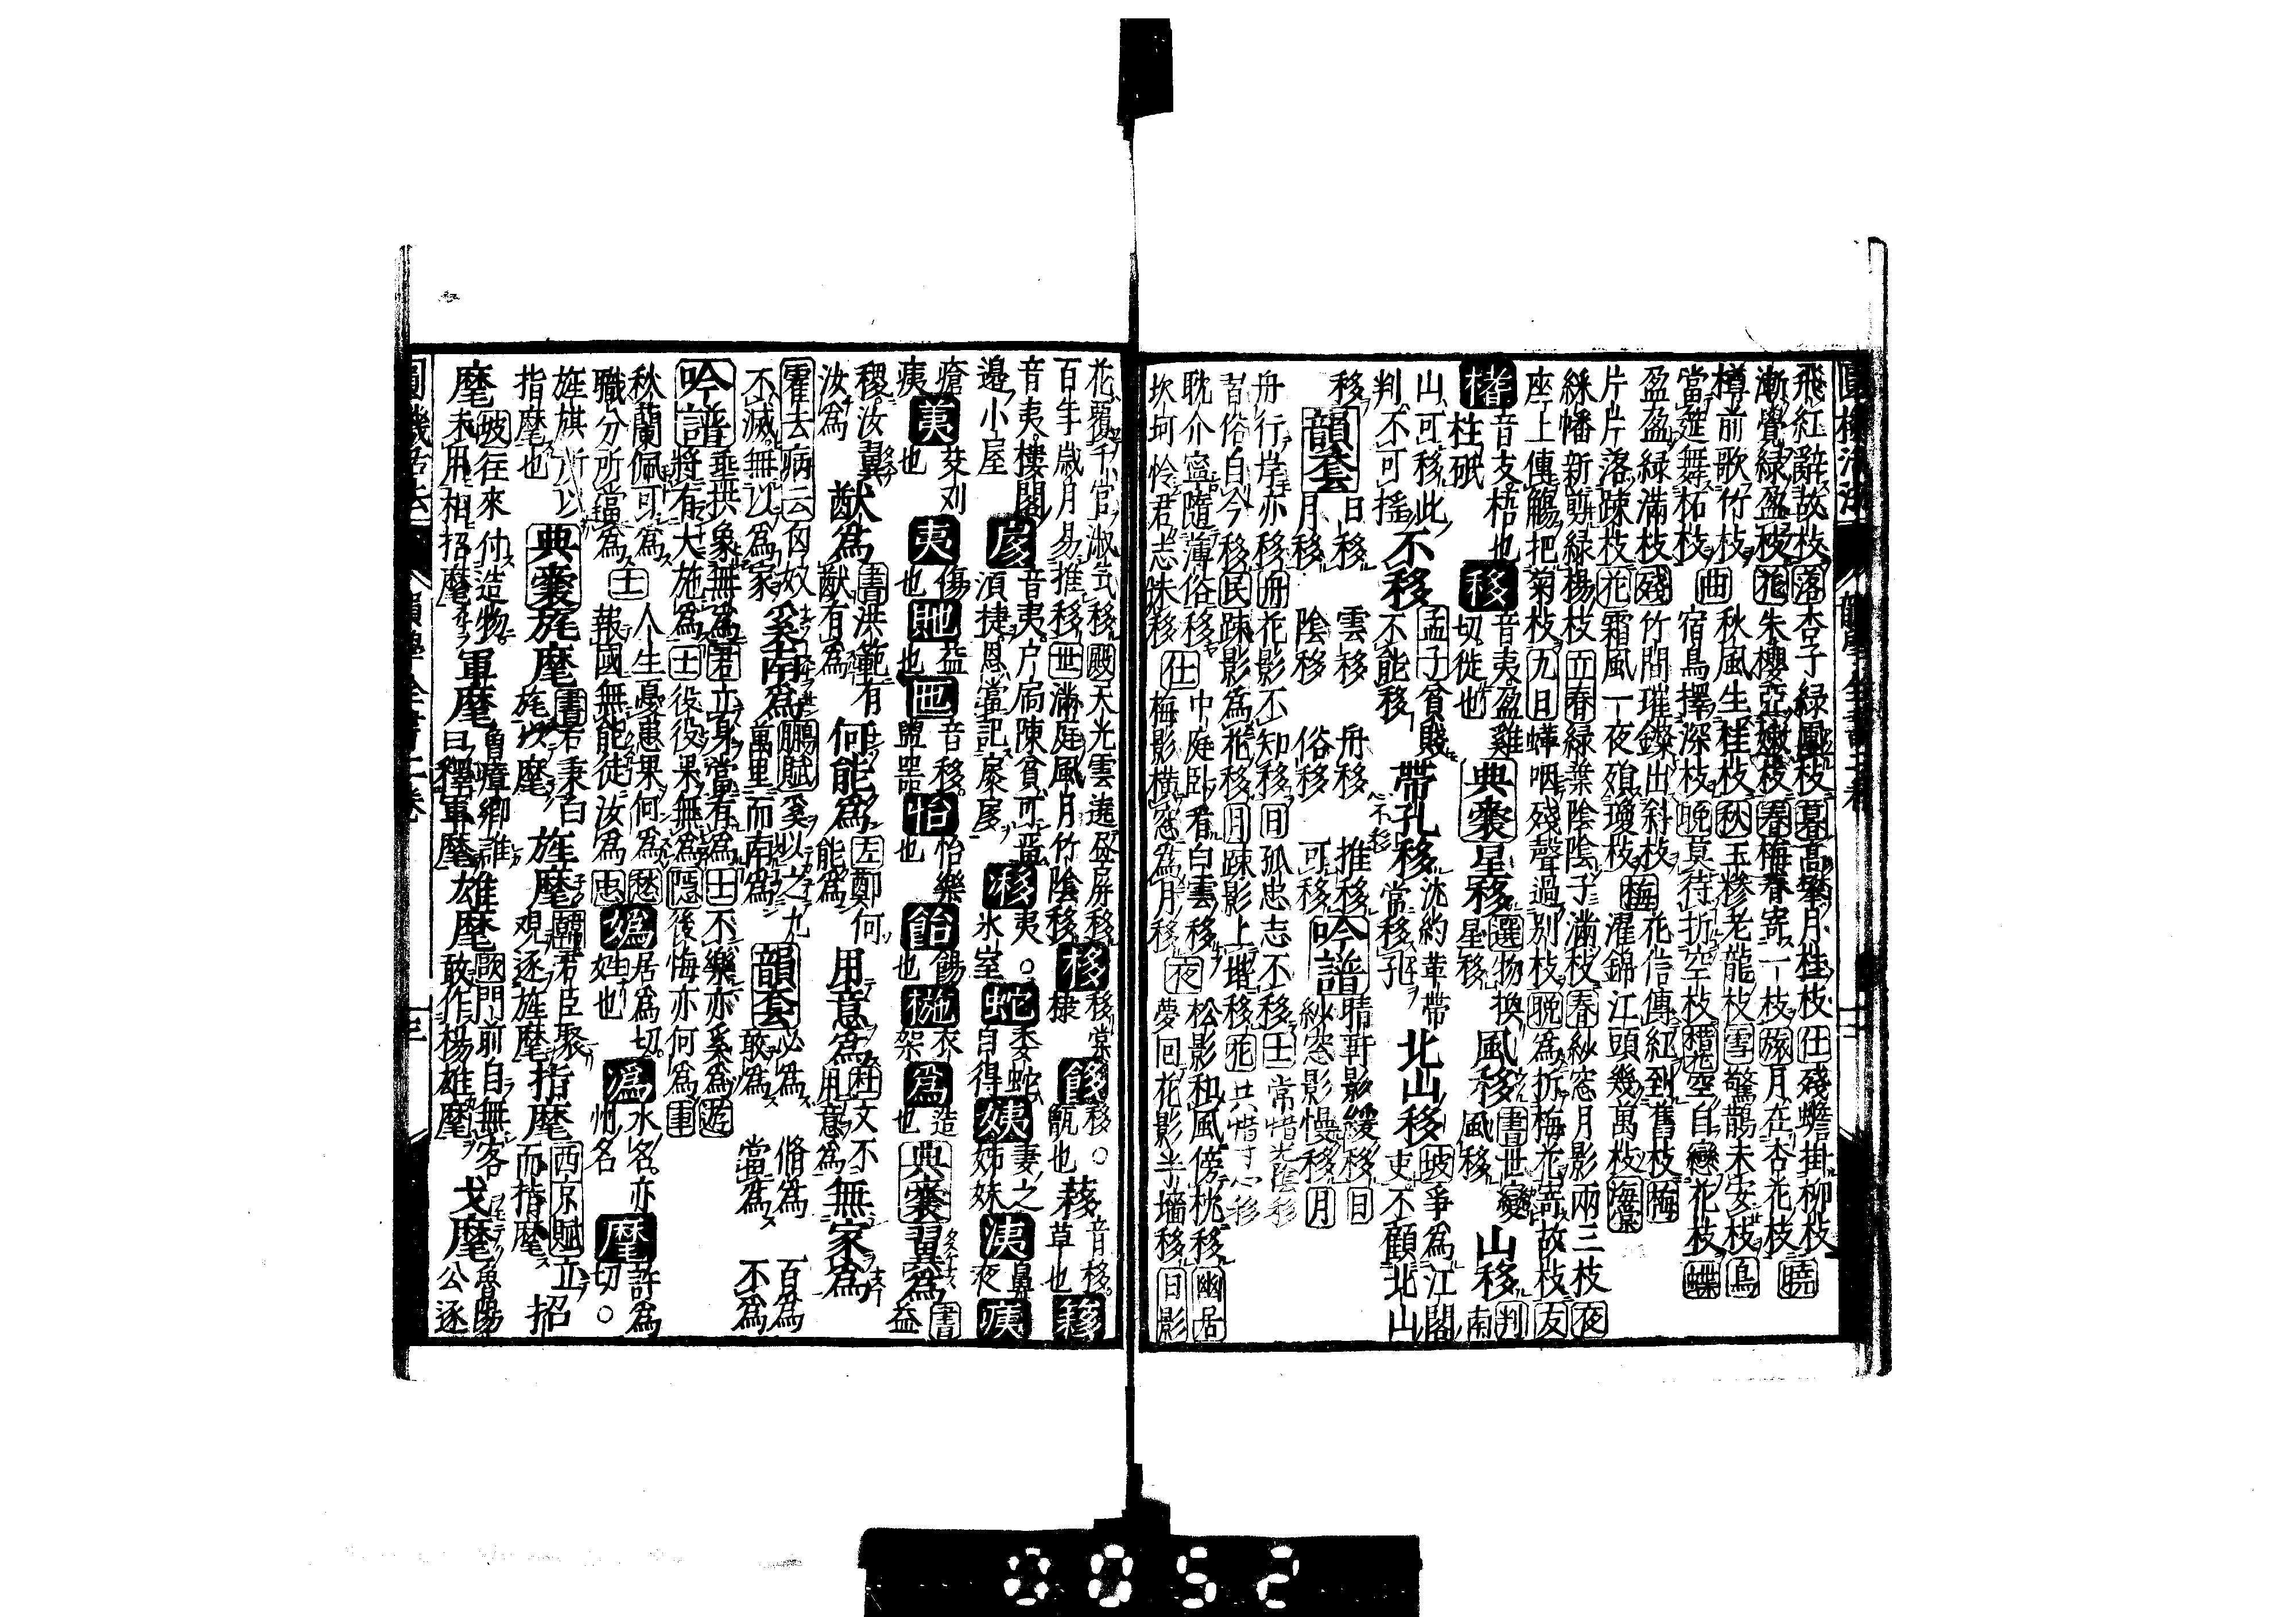 飛紅辭故枝落杏子緑圓枝暮高擎月桂枝仕殘蟾掛柳枝曉
漸覺緑盈枝花朱櫻亞嫩枝春梅春寄一枝嫁月在杏花枝
樽前歌竹枝曲秋風生桂枝秋玉慘老龍枝雪驚鵲未安枝鳥
當筵舞柘枝 宿鳥擇深枝晩莫待折空枝 空自戀花枝蝶
盈盈緑滿枝殘竹間璀鑠出斜枝梅花信傳紅到舊枝
片片落踈枝花霜風一夜殞瓊枝 濯錦江頭幾萬枝海棠
綵幡新剪緑楊枝立春緑葉陰陰子滿枝春紗窓月影兩三枝夜
座上傳觴把菊枝九日蟬咽殘聲過別枝晩為折梅花寄故枝友
楮音支梧也柱砥 移音夷盈雞切徙也 典衮 星移選物換星移 風移書世變風移 山移判南
山可移此判不可搖 不移孟子貧賤不能移 帶孔移沈約革帶常移孔 北山移坡爭為江閣吏不顧北山
移 韻套 日移 雲移 舟移 推移 月移 陰移 俗移 可移 吟譜 晴軒影緩移日紗窓影慢移月
舟行岸亦移舟花影不知移日孤忠志不移士常惜光陰移
苦俗自今移民踈影為花移月踈影上堦移花共惜寸心移
耽介寧隨薄俗移仕中庭卧看白雲移夜松影和風傍桃移幽居
坎坷怜君志未移 梅影橫窓為月移 夢回花影半墻移日影
花覆千官淑氣移殿天光雲遶蜃屏移 栘移棠棣 䬁移甑也 䔟音移草也 簃
百年歳月易推移世滿庭風月竹陰移
音夷樓閣邉小屋 扅音夷戸扃陳貧可扊須捷恩當記扊扅 栘夷氷室 蛇委蛇自得 姨妻之姉妹 洟鼻液 痍
瘡痍也 荑芟刈 夷傷也 貤益也 匜音移盥噐也 怡怡樂也 飴餳也 椸衣架 為造也 典衮 翼為書益
稷汝翼汝為 猷為書洪範有猷有為 何能為左鄭何能為 用意為杜文不用意為 無家為
霍去病云匈奴不滅無以為家 奚南為鵬賦奚以之九萬里而南為 韻套 必為 脩為 百為 敢為 當為 不為
吟譜 垂拱象無為君立身當有為士不樂亦奚為遊將有大施為士役役果無為隱後悔亦何為事
秋蘭佩可為 人生憂患果何為愁職分所當為士報國無能徒汝為忠 嬀居為切姓也 溈水名亦州名 麾許為切○
旌旗所以指麾也 典衮 旄麾書右秉白旄以麾 旌麾選君臣聚觀逐旌麾 指麾西京賦立而指麾 招
麾坡往來付造物未用相招麾 軍麾魯靈卿誰曰釋軍麾 雄麾歐門前自無客敢作楊雄麾 戈麾魯陽公逐
0052